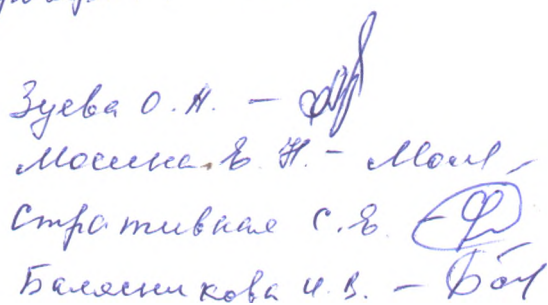 Зуева О.Н. –
Мосина Е.Н. –
Стративная С.Е.
Балясникова И.В. –